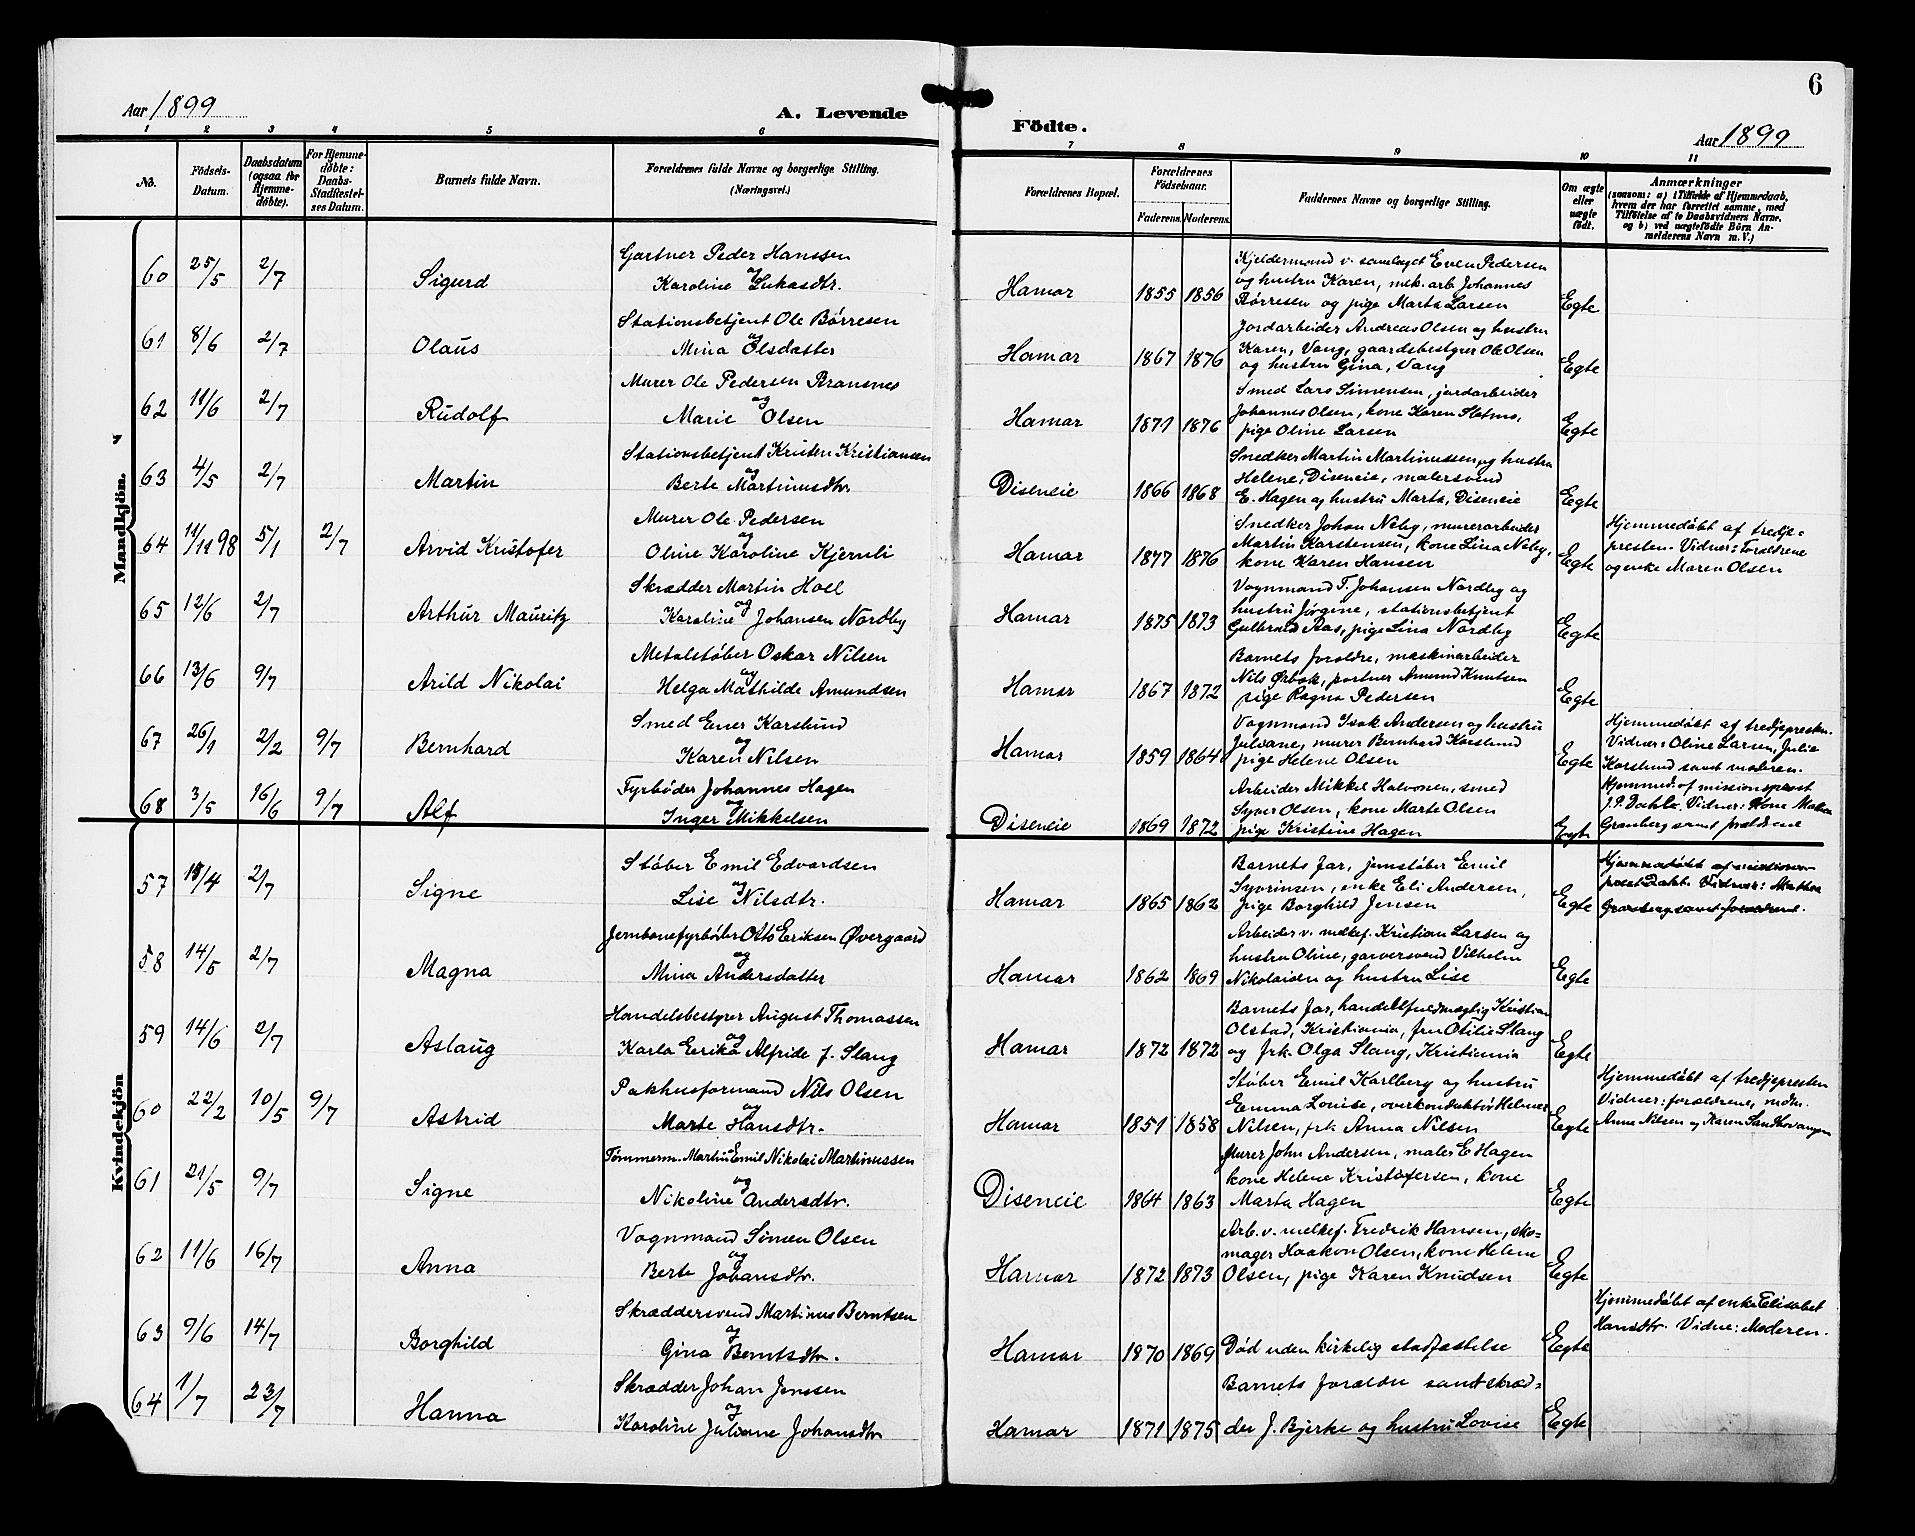 6
Aar 1899
A. Levende
Födte.
Aar 1899
1 2 3 4 5 6 7 8 9 10 11
No.
Födsels-
Datum.
Daabsdatum
(ogsaa for
Hjemme-
döbte).
For Hjemme-
döbte:
Daabs-
Stadfæstel-
ses Datum.
Barnets fulde Navn.
Forældrenes fulde Navne og borgerlige Stilling.
(Næringsvei.)
Forældrenes Bopæl.
Forældrenes
Födselsaar.
Faderens. Moderens.
Faddernes Navne og borgerlige Stilling.
Om ægte
eller
uægte
födt.
Anmærkninger
(saasom: a) i Tilfælde af Hjemmedaab,
hvem der har forrettet samme, med
Tilföielse af to Daabsvidners Navne,
og b) ved uægtefödte Börn An-
melderens Navn m. V.)
Mandkjön.
60 25/5 2/7 Sigurd
Gartner Peder Hanssen
og
Karoline Lukasdtr.
Hamar 1855 1856
Kjeldermand v. samlaget Even Pedersen
og hustru Karen, mek. arb. Johannes
Børresen og pige Marta Larsen
Egte
61 8/6 2/7 Olaus
Stationsbetjent Ole Børresen
og
Mina Olsdatter
Hamar 1867 1876
Jordarbeider Andreas Olsen og hustru
Karen, Vang, gaardsbestyrer Ole Olsen
og hustru Gina, Vang
Egte
62 11/6 2/7 Rudolf
Murer Ole Pedersen Bransnes
og
Marie Olsen
Hamar 1871 1876
Smed Lars Simensen, jordarbeider
Johannes Olsen, kone Karen
pige Oline Larsen
Egte
63 4/5 2/7 Martin
Stationsbetjent Kristen Kristiansen
og
Berte Martinusdtr
Diseneie 1866 1868
Snedker Martin Martinussen og hustru
Helene, Diseneie, malersvend
E. Hagen og hustru Marta, Diseneie
Egte
64 11/11 98 5/1 2/7 Arvid Kristofer
Murer Ole Pedersen
og
Oline Karoline Kjernli
Hamar 1877 1876
Snedker Johan Neby, murerarbeider
Martin Karstensen, kone Lina Neby,
kone Karen Hansen
Egte
Hjemmedøbt af tredje-
presten. Vidner: Forældrene
og enke Maren Olsen
65 12/6 2/7 Arthur Mauritz
Skrædder Martin Hoel
og
Karoline Johansen Nordby
Hamar 1875 1873
Vognmand T. Johansen Nordby og
hustru Jørgine, stationsbetjent
Gulbrand Aas, pige Lina Nordby
Egte
66 13/6 9/7 Arild Nikolai
Metalstøber Oskar Nilsen
og
Helga Mathilde Amundsen
Hamar 1867 1872
Barnets forældre, maskinarbeider
Nils Ørbæk, portner Amund Knutsen
pige Ragna Pedersen
Egte
67 26/1 2/2 9/7 Bernhard
Smed Ener Karslund
og
Karen Nilsen
Hamar 1859 1864
Vognmand Isak Andersen og hustru
Julvane, murer Bernhard Karslund
pige Helene Olsen
Egte
Hjemmedøbt af tredjepresten.
Vidner: Oline Larsen, Julie
Karslund samt moderen.
68 3/5 16/6 9/7 Alf
Fyrbøder Johannes Hagen
og
Inger Mikkelsen
Diseneie 1869 1872
Arbeider Mikkel Halvorsen, smed
Syver Olsen, kone Marte Olsen
pige Kristine Hagen
Egte
Hjemmed. af missionsprest
J. P. Dahle. Vidner: Kone
Granberg samt forældrene
Kvindekjön
57 13/4 2/7 Signe
Støber Emil Edvardsen
og
Lise Nilsdtr.
Hamar 1865 1862
Barnets far, jernstøber Emil
Syvrinsen, enke Eli Andersen,
pige Borghild Jensen
Egte
Hjemmedøbt af missions-
prest Dahle. Vidner:
Granberg samt forældrene.
58 14/5 2/7 Magna
Jernbanefyrbøder Otto Eriksen Øvergaard
og
Mina Andersdatter
Hamar 1862 1869
Arbeider v. melkef. Kristian Larsen og
hustru Oline, garversvend Vilhelm
Nikolaisen og hustru Lise
Egte
59 14/6 2/7 Aslaug
Handelsbestyrer August Thomassen
og
Karla Erika Alfride f. Slang
Hamar 1872 1872
Barnets far, handelsfuldmægtig Kristian
Olstad, Kristiania, fru Otilie Slang
og frk. Olga Slang, Kristiania
Egte
60 22/2 10/5 9/7 Astrid
Pakhusformand Nils Olsen
og
Marte Hansdtr.
Hamar 1851 1858
Støber Emil Karlberg og hustru
Emma Louise, overkonduktør Helmer
Nilsen, frk. Anna Nilsen
Egte
Hjemmedøbt af tredjepresten
Vidner: forældrene, mdm.
Anne Nilsen og Karen Sandhovangen
61 21/5 9/7 Signe
Tømmerm. Martin Emil Nikolai Martinussen
og
Nikoline Andersdtr.
Diseneie 1864 1863
Murer John Andersen, maler E Hagen
kone Helene Kristofersen, kone
Marta Hagen
Egte
62 11/6 16/7 Anna
Vognmand Simen Olsen
og
Berte Johansdtr.
Hamar 1872 1873
Arb. v. melkef. Fredrik Hansen, sko-
mager Haakon Olsen, kone Helene
Olsen, pige Karen Knudsen
Egte
63 9/6 14/7 Borghild
Skræddersvend Martinus Berntsen
og
Gina Berntsdtr.
Hamar 1870 1869
Død uden kirkelig stadfæstelse
Egte
Hjemmedøbt af enke Elisabet
Hansdtr. Vidne: Moderen.
64 1/7 23/7 Hanna
Skrædder Johan Jenssen
og
Karoline Juliane Johansdtr
Hamar 1871 1875
Barnets forældre samt skræd-
der J. Bjerke og hustru Lovise
Egte